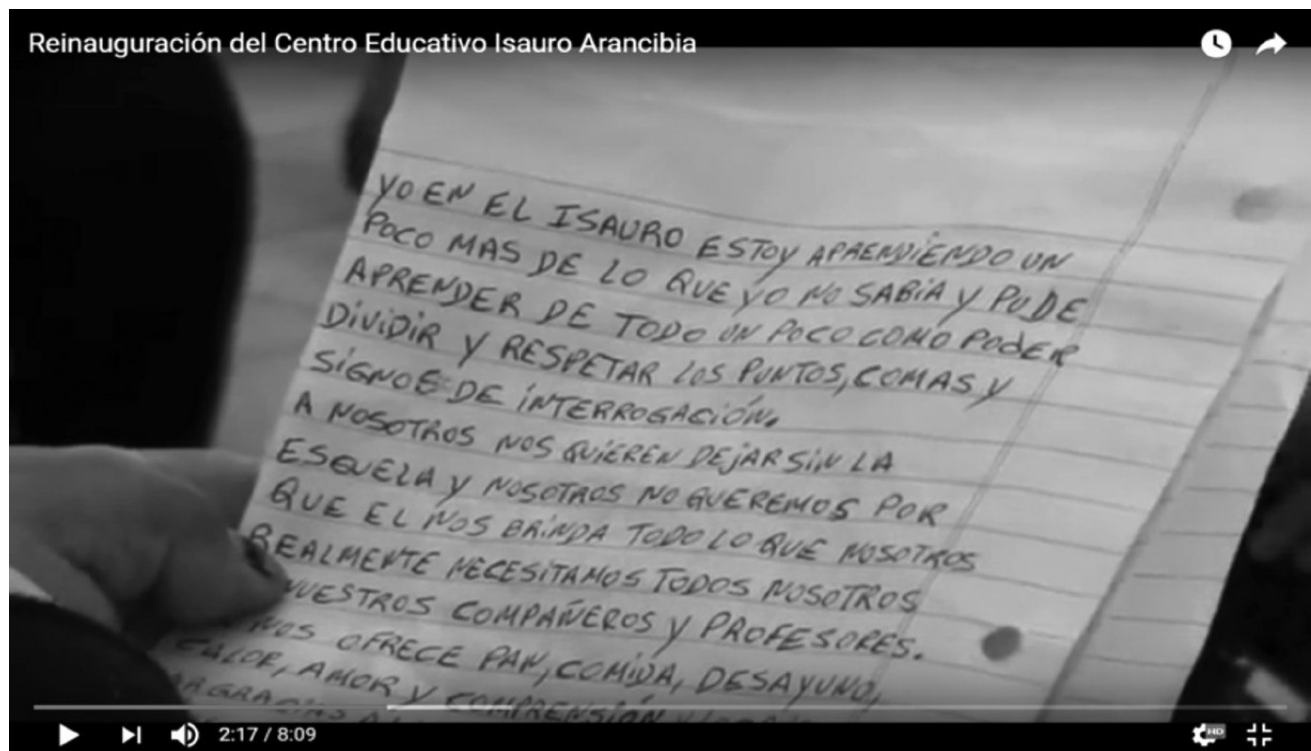 Reinauguración del Centro Educativo Isauro Arancibia
YO EN EL ISAURO ESTOY APRENDIENDO UN
POCO MAS DE LO QUE YO NO SABIA Y PUDE
APRENDER DE TODO UN POCO COMO PODER
DIVIDIR Y RESPETAR LOS PUNTOS, COMAS Y
SIGNOS DE INTERROGACIÓN.
A NOSOTROS NOS QUIEREN DEJAR SIN LA
ESCUELA Y NOSOTROS NO QUEREMOS POR
QUE EL NOS BRINDA TODO LO QUE NOSOTROS
REALMENTE NECESITAMOS TODOS NOSOTROS
NUESTROS COMPAÑEROS Y PROFESORES.
NOS OFRECE PAN, COMIDA, DESAYUNO,
CALOR, AMOR Y COMPRENSIÓN
2:17 / 8:09
HD